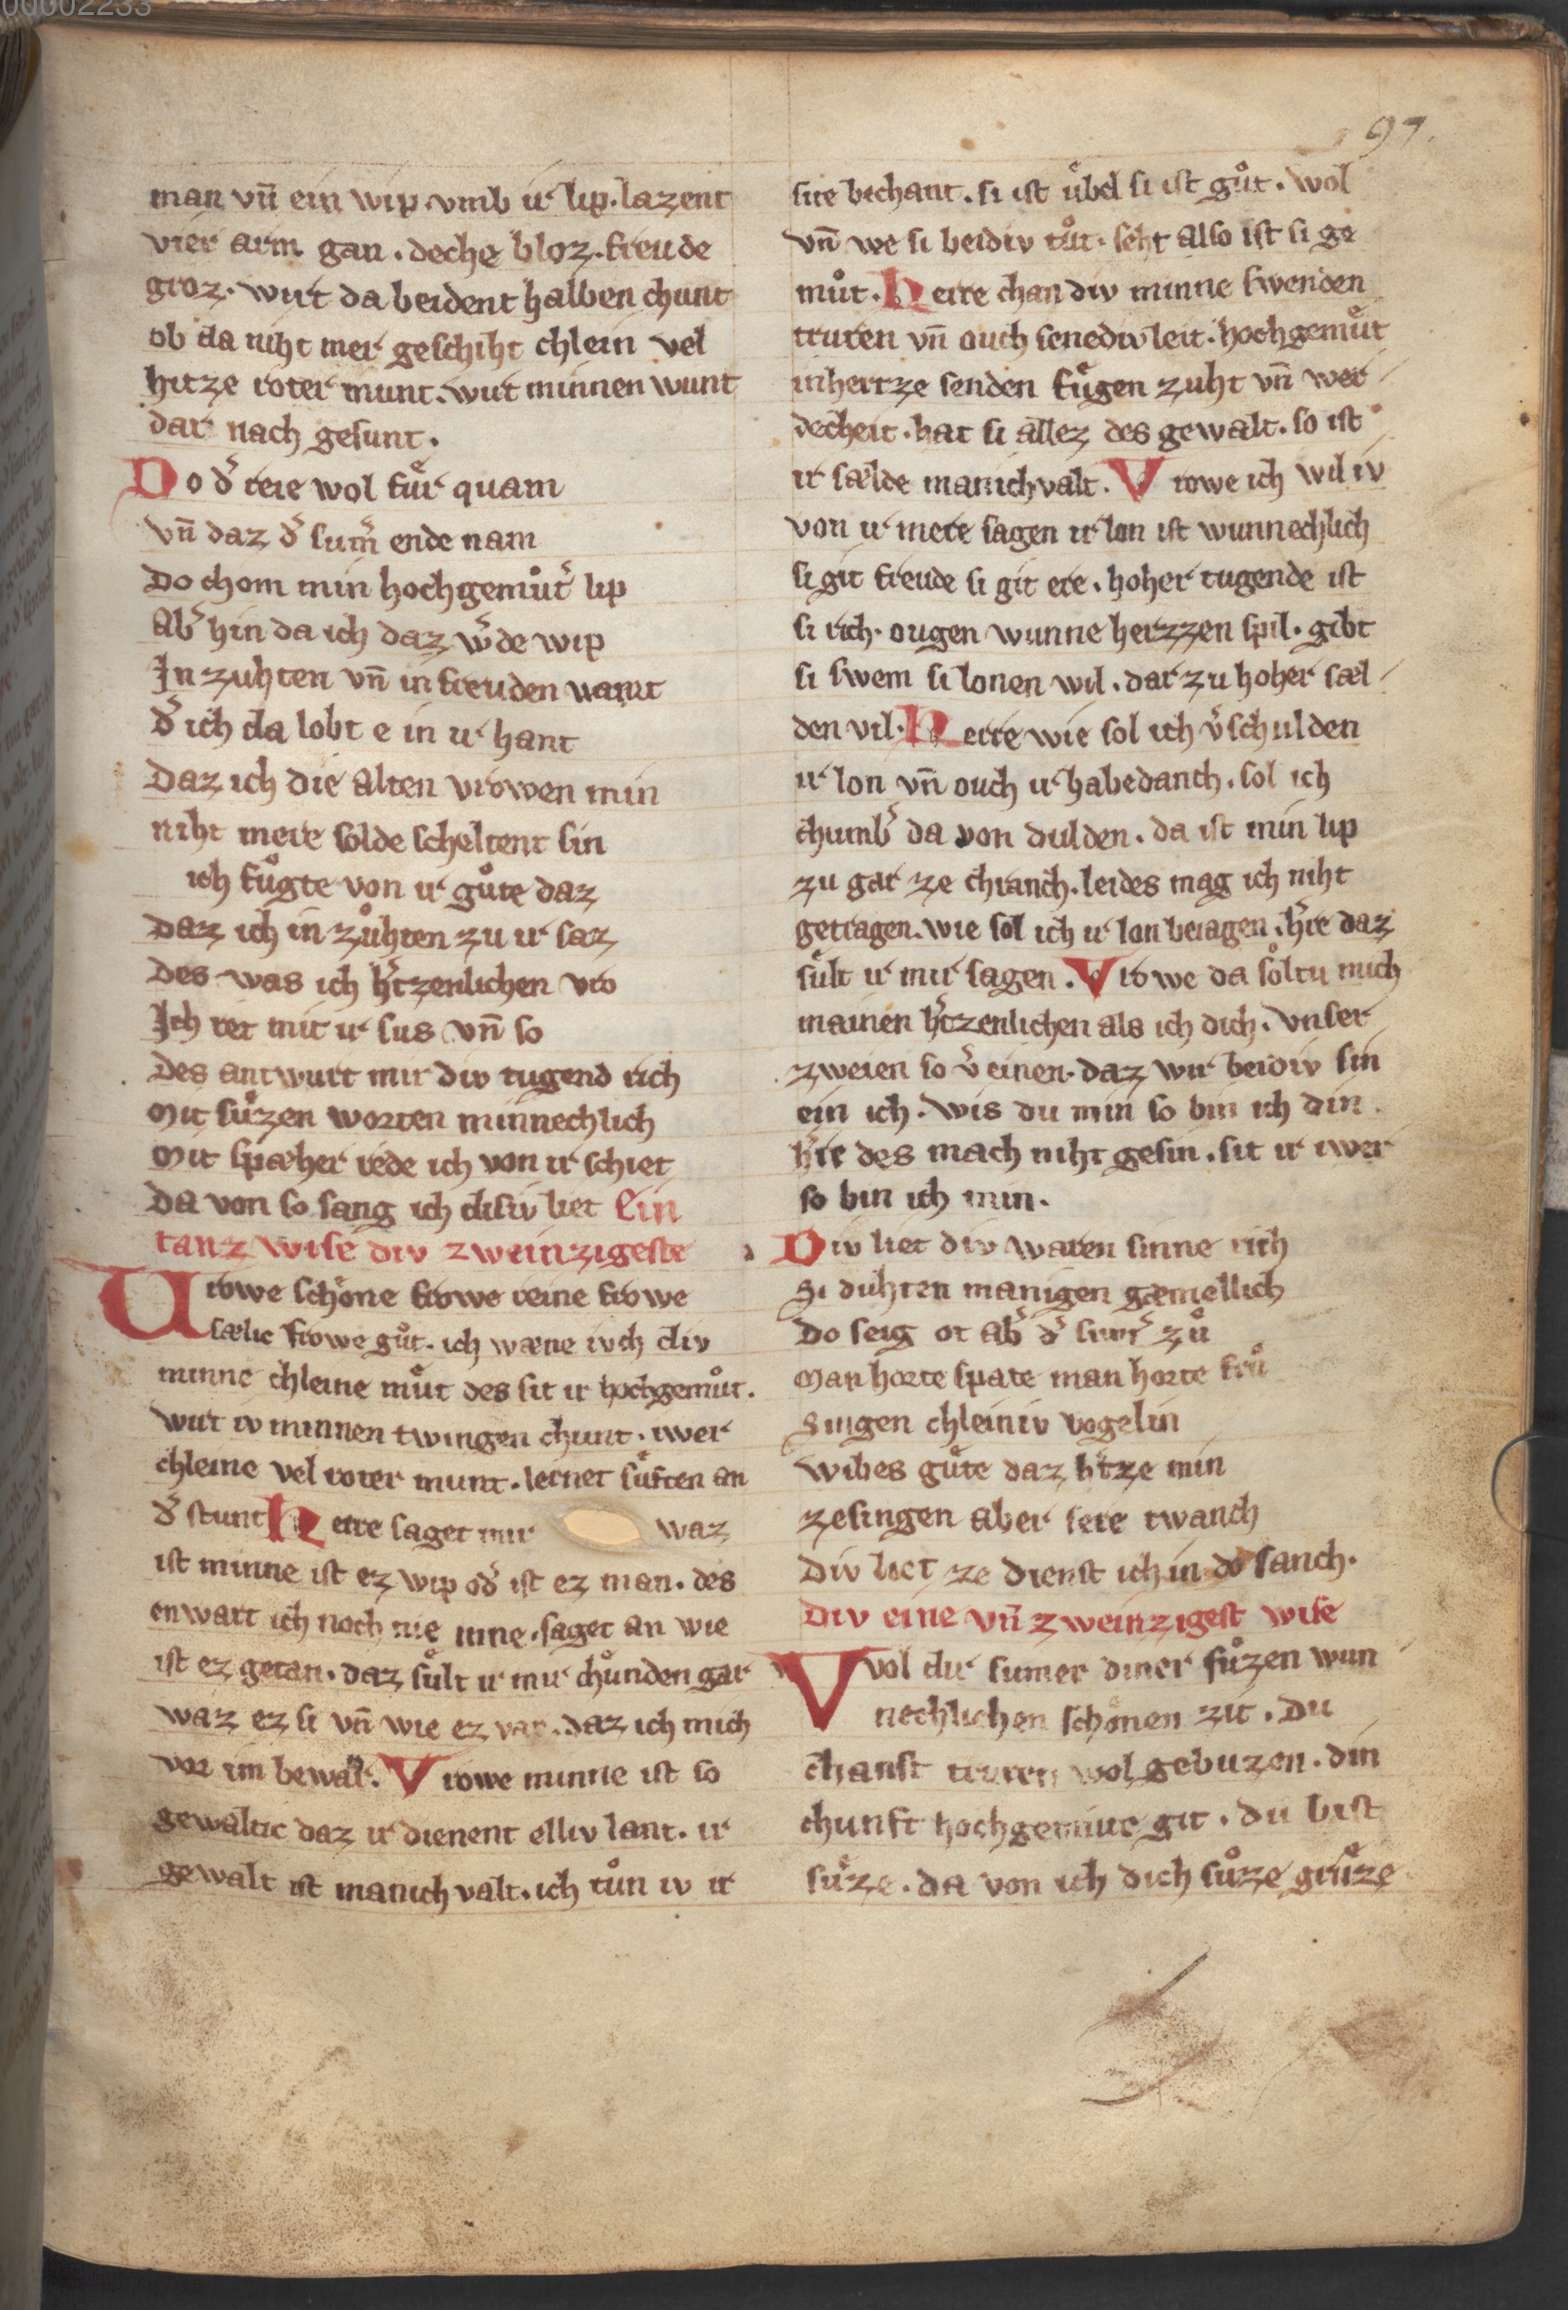 00002233
97.
man vn̄ ein wip. vmb ir lip. lazent
vier arm gan. deche bloz. freude
groz. wirt da beident halben chunt
ob da niht mer geschiht chlein vel
hitze roter munt. wirt minnen wunt
dar nach gesunt.
Do d͛ reie wol fuͤr quam
vn̄ daz d͛ sum̄͛ ende nam
Do chom min hochgemuͦt͛ lip
Ab͛ hin da ich daz w͛de wip
In zuhten vn̄ in freuden vant
d͛ ich da lobt e in ir hant
Daz ich die alten vrowen min
niht mere solde scheltent sin
ich fuͦgte von ir guͦte daz
Daz ich in zuͦhten zu ir saz
Des was ich h͛tzenlichen vro
Ich ret mit ir sus vn̄ so
Des antwurt mir div tugend rich
Mit suͦzen worten minnechlich
Mit spæher rede ich von ir schiet
Da von so sang ich disiv liet Ein
tanz wise div zweinzigeste
Urowe schoͤne frowe reine frowe
sælic frowe guͦt. ich wæne ivch div
minne chleine muͤt des sit ir hochgemuͦt.
Wirt iv minnen twingen chunt. iwer
chleine vel roter munt. lernet suͤften an
d͛ stunt Herre saget mir waz
ist minne ist ez wip od͛ ist ez man. des
enwart ich noch nie inne. saget an wie
ist ez getan. daz suͤlt ir mir chuͤnden gar
waz ez si vn̄ wie ez var. daz ich mich
vor im bewar. Vrowe minne ist so
gewaltic daz ir dienent elliv lant. ir
gewalt ist manich valt. ich tuͦn iv ir
site bechant. si ist uͤbel si ist guͦt. wol
vn̄ we si beidiv tuͦt. seht also ist si ge
muͦt. Herre chan div minne swenden
truren vn̄ ouch senediv leit. hochgemuͤt
in hertze senden fuͤgen zuht vn̄ wer
decheit. hat si allez des gewalt. so ist
ir sælde manichvalt. Vrowe ich wil iv
von ir mere sagen ir lon ist wunnechlich
si git freude si git ere. hoher tugende ist
si rich. ougen wunne herzzen spil. gibt
si swem si lonen wil. dar zu hoher sæl
den vil. Herre wie sol ich v͛schulden
ir lon vn̄ ouch ir habedanch. sol ich
chumb͛ da von dulden. da ist min lip
zu gar ze chranch. leides mag ich niht
getragen. wie sol ich ir lon beiagen. h͛re daz
suͤlt ir mir sagen. Vrowe da soͤltu mich
mainen h͛tzenlichen als ich dich. vnser
zweien so v͛einen. daz wir beidiv sin
ein ich. wis du min so bin ich din.
h͛re des mach niht gesin. sit ir iwer
so bin ich min.
Div liet div waren sinne rich
Si duhten manigen gæmellich
Do seig ot ab͛ d͛ sum͛ zuͦ
Man horte spate man horte fruͦ
Singen chleiniv vogelin
Wibes guͤte daz h͛tze min
zesingen aber sere twanch
Div liet ze dienst ich in do sanch.
Div eine vn̄ zweinzigest wise
Wol dir sumer diner suͦzen wun
nechlichen schoͤnen zit. Du
chanst truren wol gebuzen. din
chunft hochgemuͤte git. du bist
suͤze. da von ich dich suͦze gruͤze